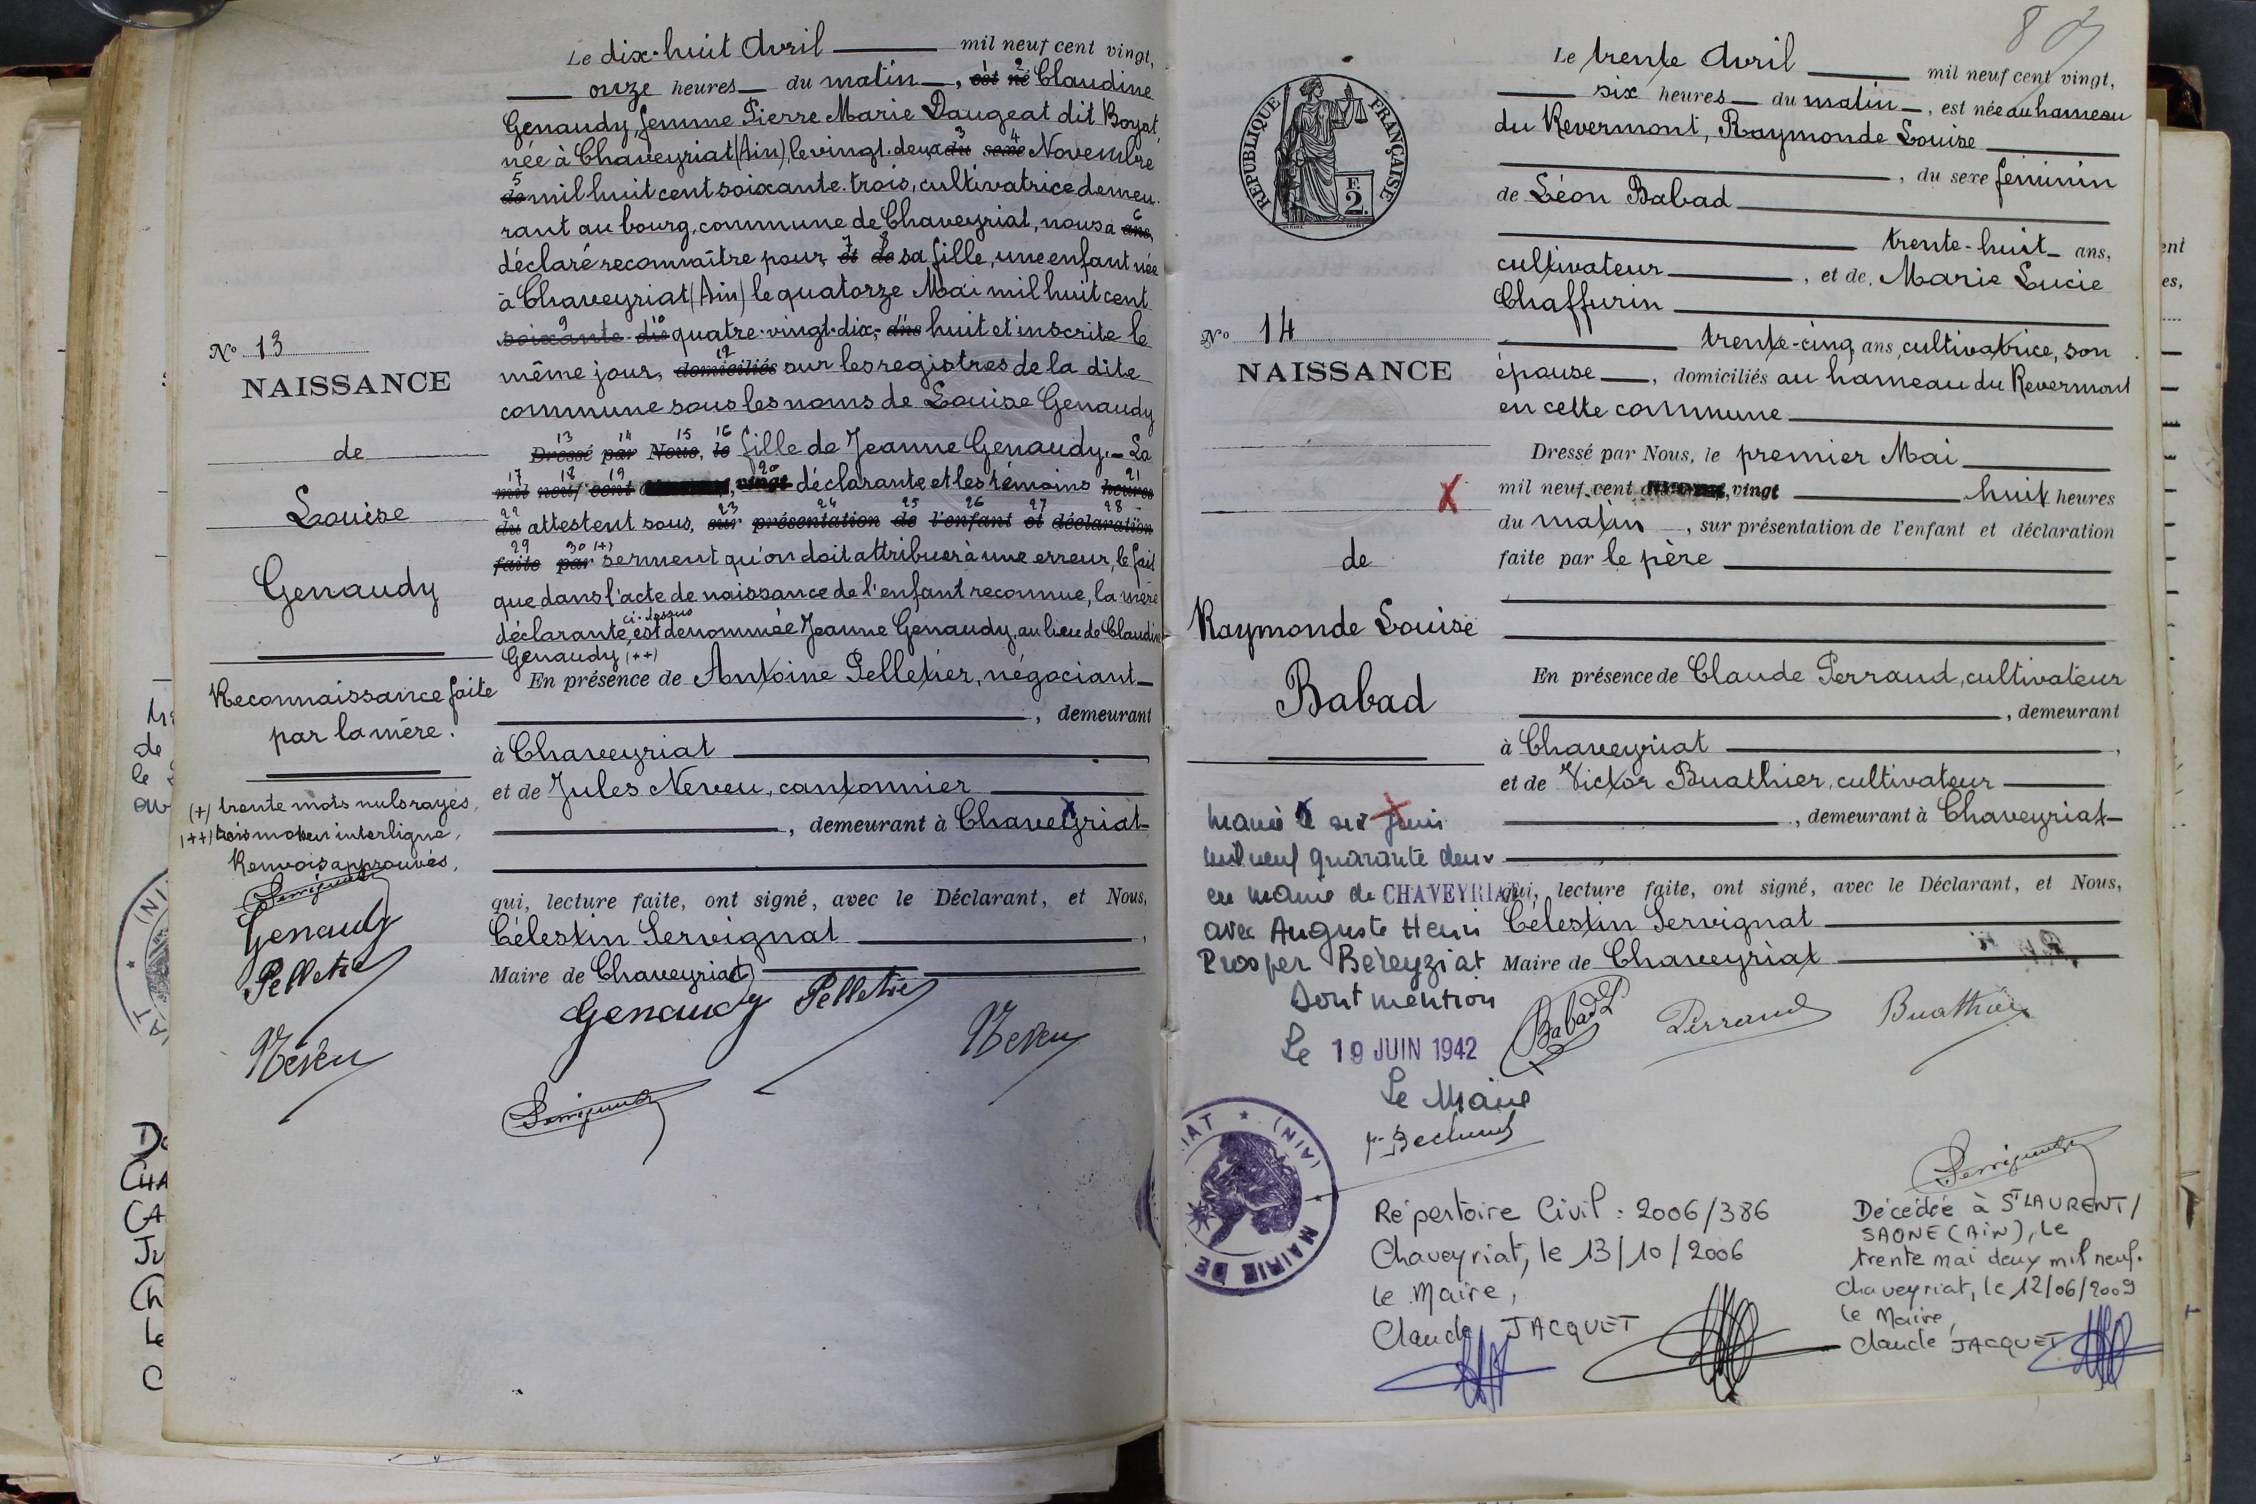 Le dix-huit Avril mil neuf cent vingt,
onze heures du matin, est né Claudine
Genaudy, femme Pierre Marie Daugeat dit Boyat
née à Chaveyriat (Ain), le vingt-deux du sexe Novembre
de mil huit cent soixante-trois, cultivatrice demeu-
rant au bourg, commune de Chaveyriat, nous a ans,
déclaré reconnaître pour, et de sa fille, une enfant née
à Chaveyriat (Ain) le quatorze Mai mil huit cent
quatre-vingt-dix-huit et inscrite le
même jour, domiciliés sur les registres de la dite
commune sous les noms de Louise Genaudy
Dressé par Nous, le fille de Jeanne Genaudy.- La
mil neuf cent, vingt déclarante et les témoins heures
du attestent sous, sur présentation de l'enfant et déclaration
faite par (+) serment qu'on doit attribuer à une erreur, le fait
que dans l'acte de naissance de l'enfant reconnue, la mère
déclarante, ci-dessus est dénommée Jeanne Genaudy, au lieu de Claudine
Genaudy (++)
En présence de Antoine Pelletier, négociant
, demeurant
à Chaveyriat
et de Jules Neveu, cantonnier
, demeurant à Chaveyriat
qui, lecture faite, ont signé, avec le Déclarant, et Nous,
Célestin Servignat,
Maire de Chaveyriat
Genaudy Pelletier
Neveu
Servignat
N° 13
NAISSANCE
de
Louise
Genaudy
Reconnaissance faite
par la mère.
(+) trente mots nuls rayés,
(++) trois mots en interligne,
Renvois approuvés,
Servignat
Genaudy
Pelletier
Neveu
8
RÉPUBLIQUE FRANÇAISE
E
2.
Le trente Avril mil neuf cent vingt,
six heures du matin, est née au hameau
du Revermont, Raymonde Louise
, du sexe féminin
de Léon Babad
trente-huit ans,
cultivateur, et de Marie Lucie
Chaffurin
trente-cinq ans, cultivatrice, son
épouse, domiciliés au hameau du Revermont
en cette commune
Dressé par Nous, le premier Mai
mil neuf cent, vingt huit heures
du matin, sur présentation de l'enfant et déclaration
faite par le père
En présence de Claude Perraud, cultivateur
, demeurant
à Chaveyriat,
et de Victor Buathier, cultivateur
, demeurant à Chaveyriat
qui, lecture faite, ont signé, avec le Déclarant, et Nous,
Célestin Servignat
Maire de Chaveyriat
Babad L Perraud Buathier
Servignat
N° 14
NAISSANCE
de
Raymonde Louise
Babad
Marié le six Juin
mil neuf quarante deux
en mairie de CHAVEYRIAT
avec Auguste Henri
Prosper Béreyziat
Dont mention
Le 19 JUIN 1942
Le Maire
MAIRIE DE
(AIN)
Répertoire Civil : 2006/386
Chaveyriat, le 13/10/2006
Le Maire,
Claude JACQUET
Décédée à St LAURENT/
SAONE (AIN), le
trente mai deux mil neuf.
Chaveyriat, le 12/06/2009
Le Maire,
Claude JACQUET